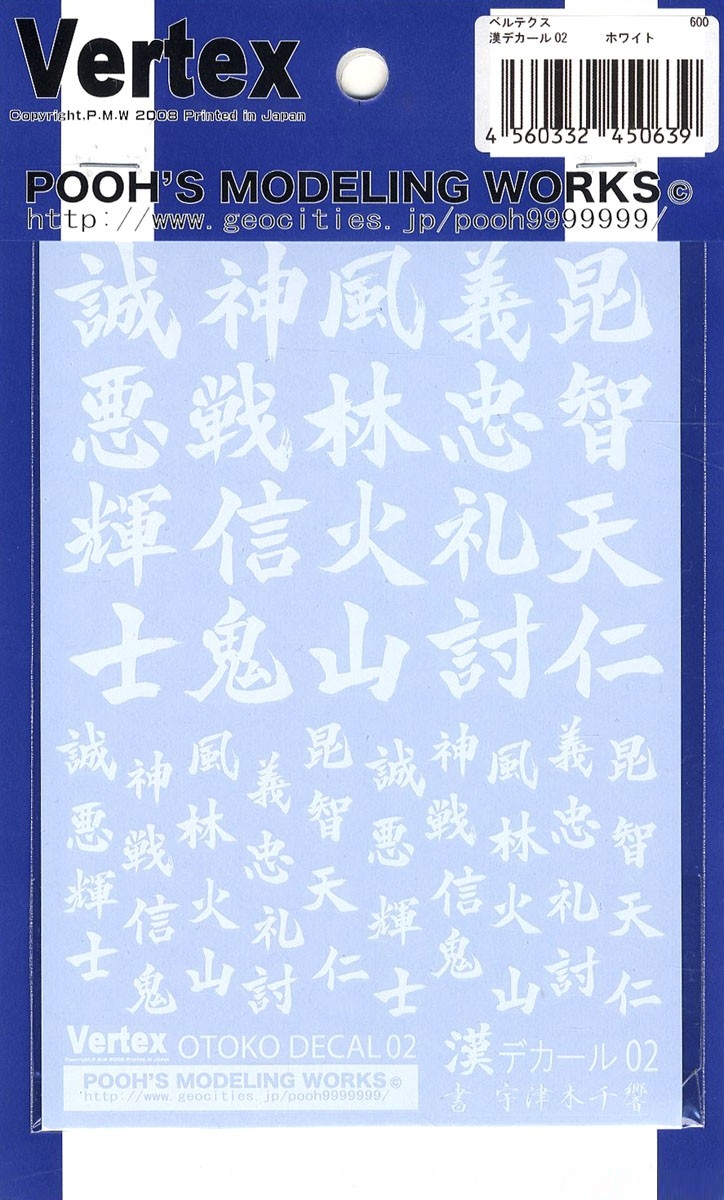 Vertex
Copyright.P.M.W 2008 Printed in Japan
ベルテクス 600
漢デカール02 ホワイト
4 560332 450639
POOH'S MODELING WORKS©
http://www.geocities.jp/pooh9999999/
誠 神 風 義 昆
悪 戦 林 忠 智
輝 信 火 礼 天
士 鬼 山 討 仁
誠 神 風 義 昆 誠 神 風 義 昆
悪 戦 林 忠 智 悪 戦 林 忠 智
輝 信 火 礼 天 輝 信 火 礼 天
士 鬼 山 討 仁 士 鬼 山 討 仁
Vertex
Copyright.P.M.W 2008 Printed in Japan
OTOKO DECAL 02
POOH'S MODELING WORKS©
http://www.geocities.jp/pooh9999999/
漢デカール 02
書 宇津木千響